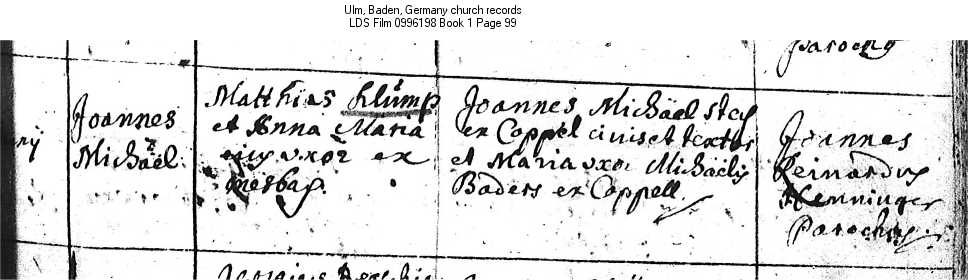 Ulm, Baden, Germany church records
LDS Film 0996198 Book 1 Page 99
Parochus
Joannes
Michäel
Matthias Klump
et Anna Maria
ejus uxor ex
Joannes Michäel
ex Coppel civis et textor
et Maria uxor Michäelis
Baders ex Coppell
Joannes
Reinardus
Henninger
Parochus